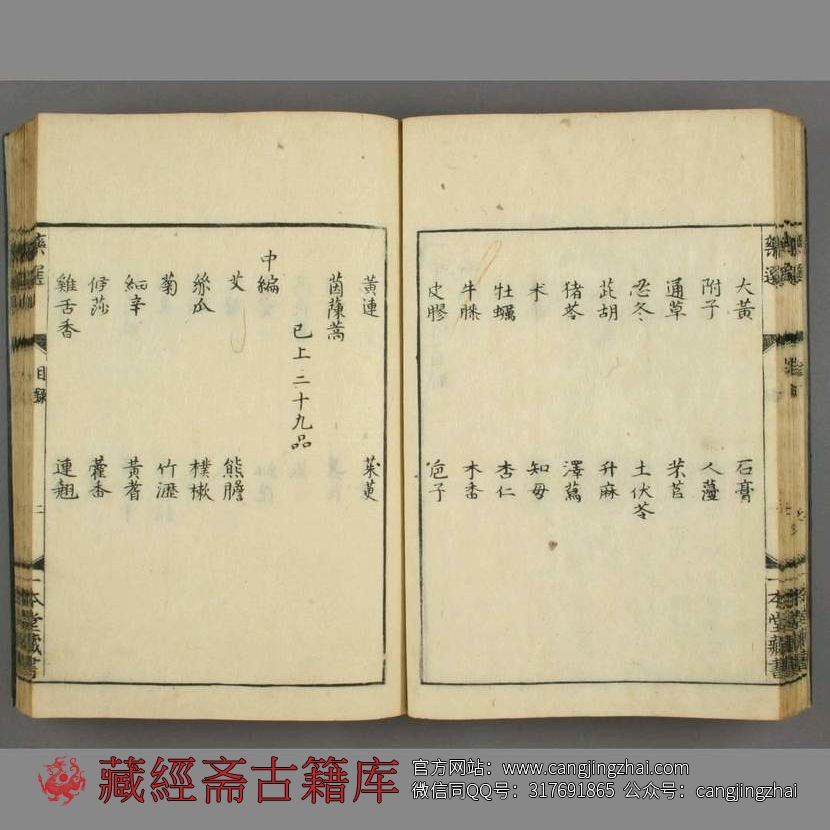 大黃 石膏
附子 人薓
通草 芣苢
忍冬 土伏苓
茈胡 升麻
猪苓 澤蕮
朮 知母
牡蠣 杏仁
牛膝 木香
皮膠 巵子
黃連 茱萸
茵蔯蒿
已上二十九品
中編
艾 熊膽
絲瓜 樸樕
菊 竹瀝
細辛 黃耆
修莎 藿香
雞舌香 連翹
藥選 目錄 二
一本堂藏書
藏經斋古籍库
官方网站：www.cangjingzhai.com
微信同QQ号：317691865 公众号：cangjingzhai